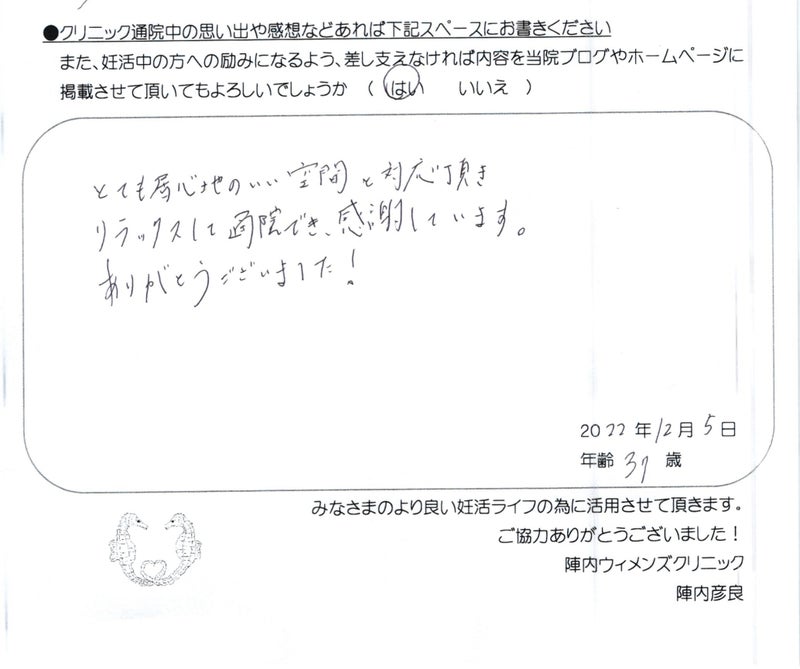 ●クリニック通院中の思い出や感想などあれば下記スペースにお書きください
また、妊活中の方への励みになるよう、差し支えなければ内容を当院ブログやホームページに
掲載させて頂いてもよろしいでしょうか （ はい　いいえ ）
とても居心地のいい空間と対応頂き
リラックスして通院でき、感謝しています。
ありがとうございました！
2022年12月5日
年齢 37 歳
みなさまのより良い妊活ライフの為に活用させて頂きます。
ご協力ありがとうございました！
陣内ウィメンズクリニック
陣内彦良